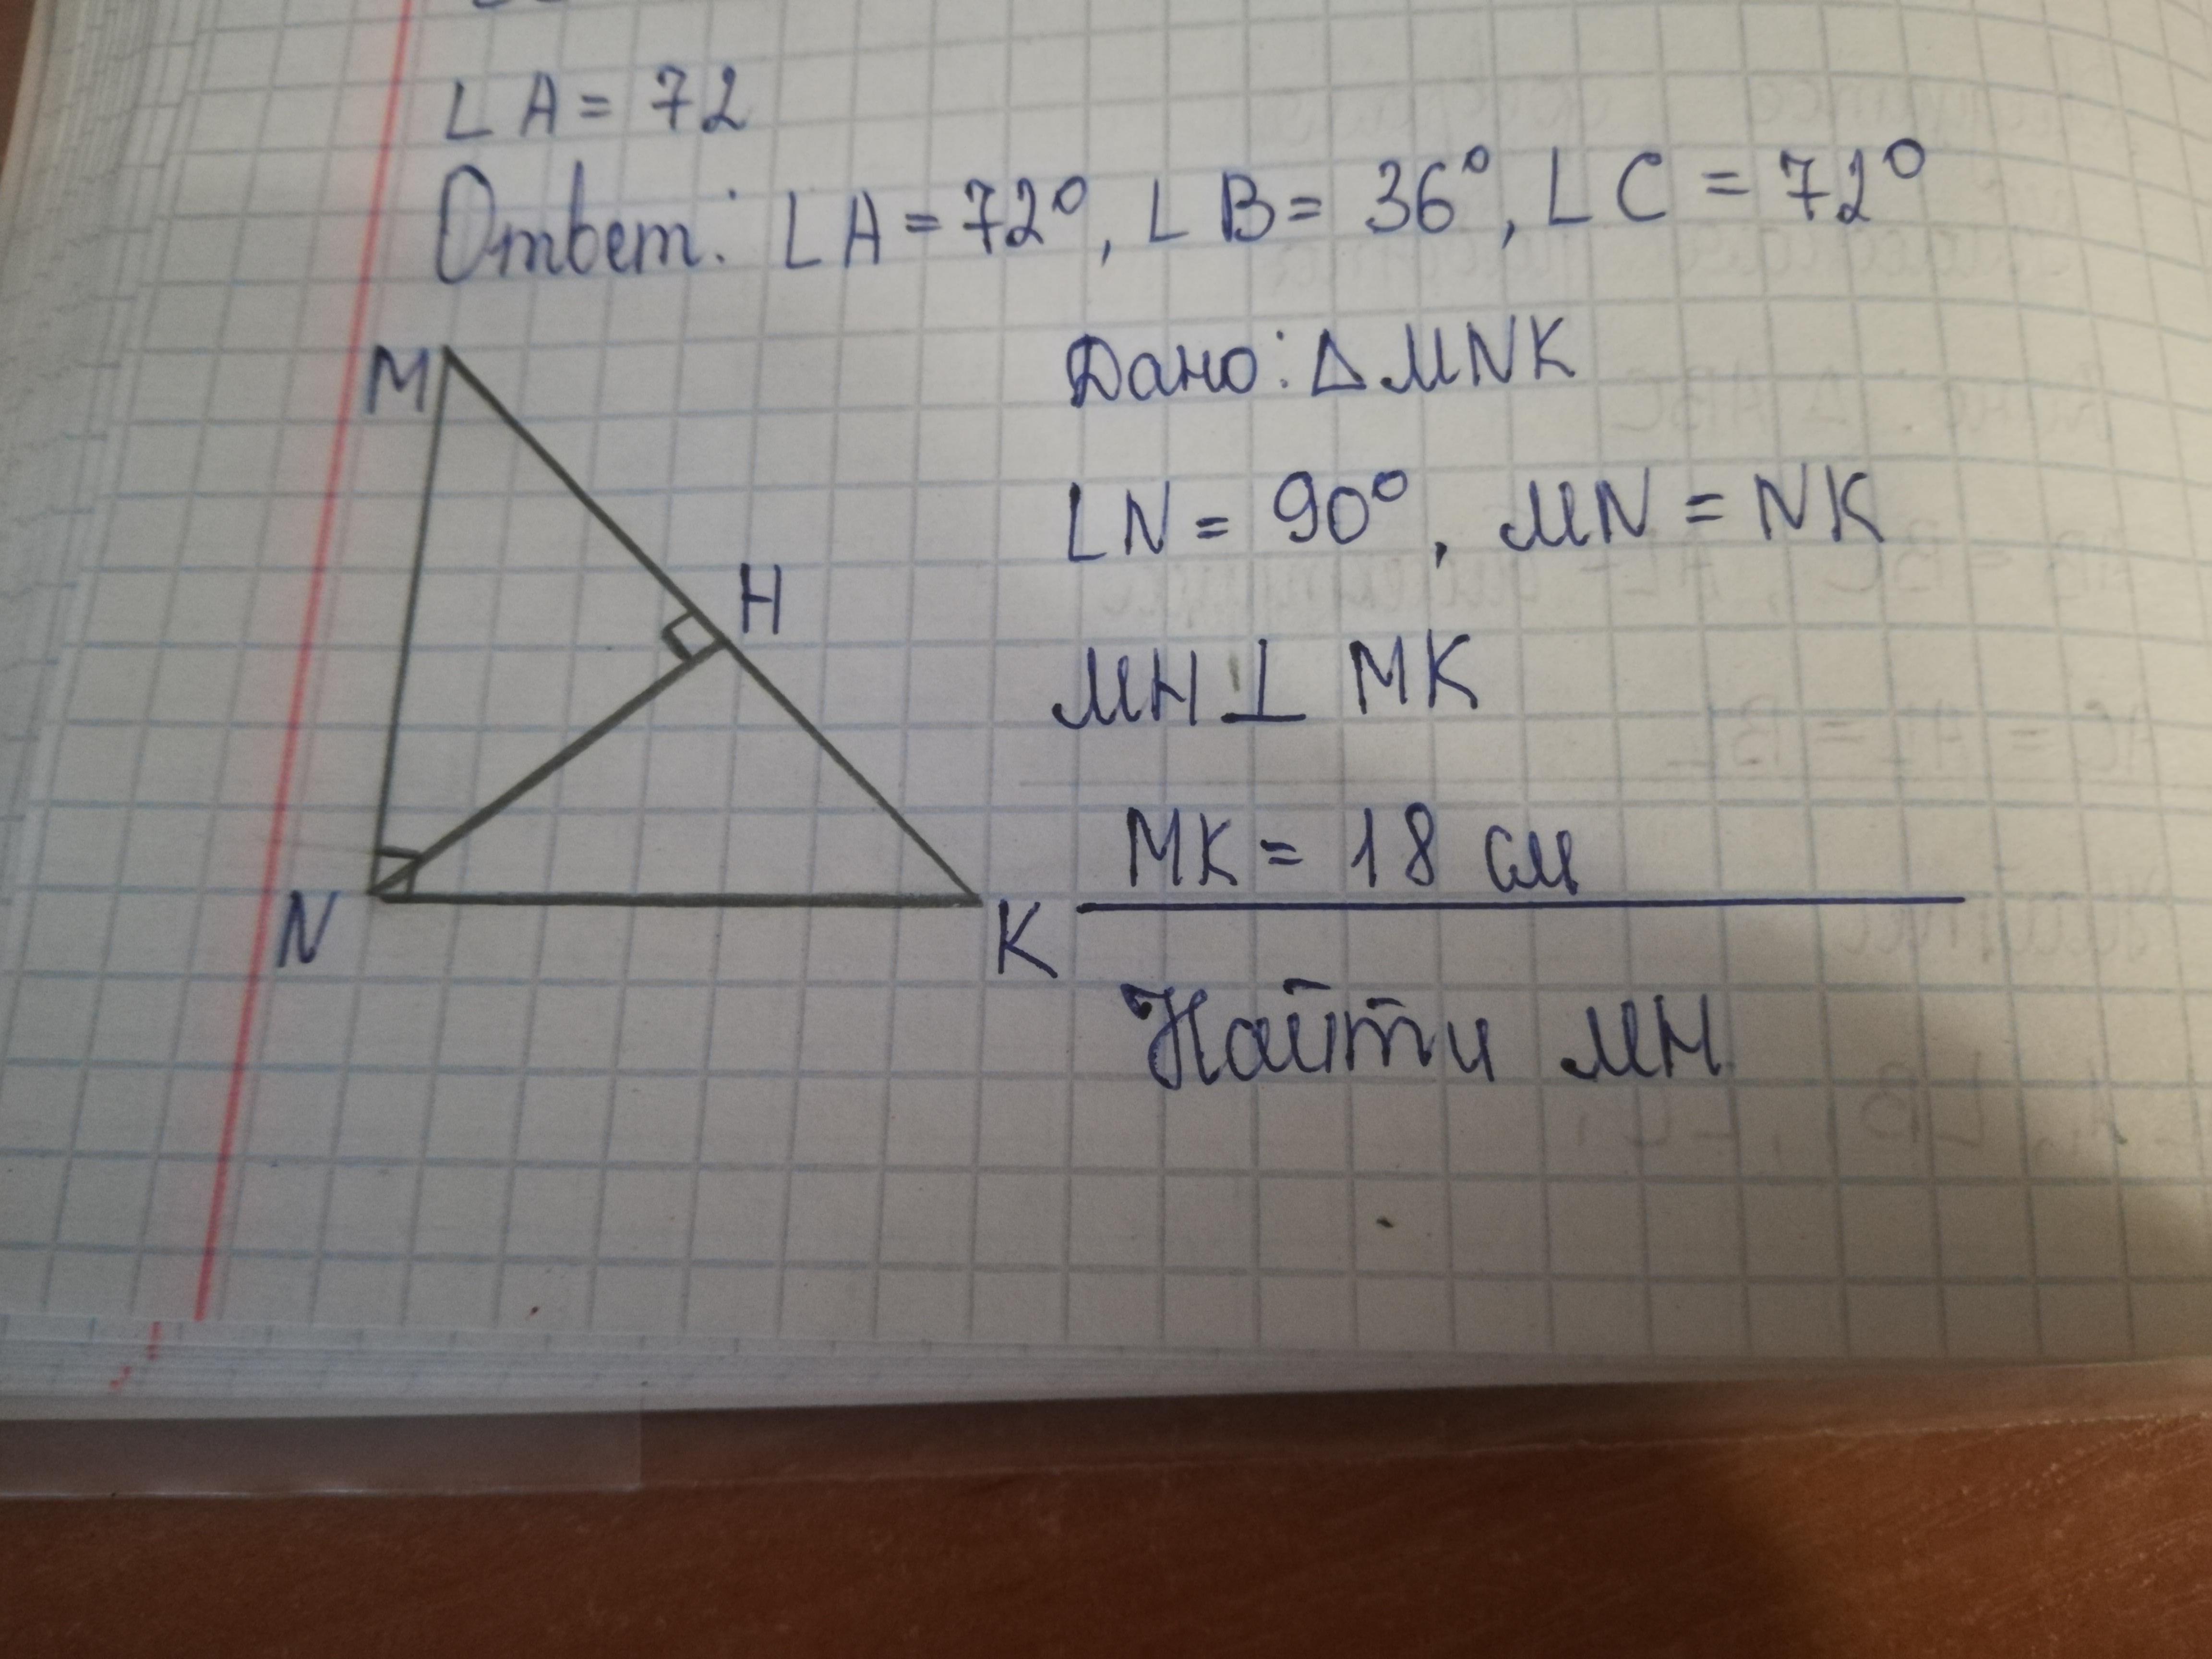 ∠A = 72
Ответ: ∠A = 72°, ∠B = 36°, ∠C = 72°
M
H
N
K
Дано: △MNK
∠N = 90°, MN = NK
MH ⊥ MK
MK = 18 см
Найти MH